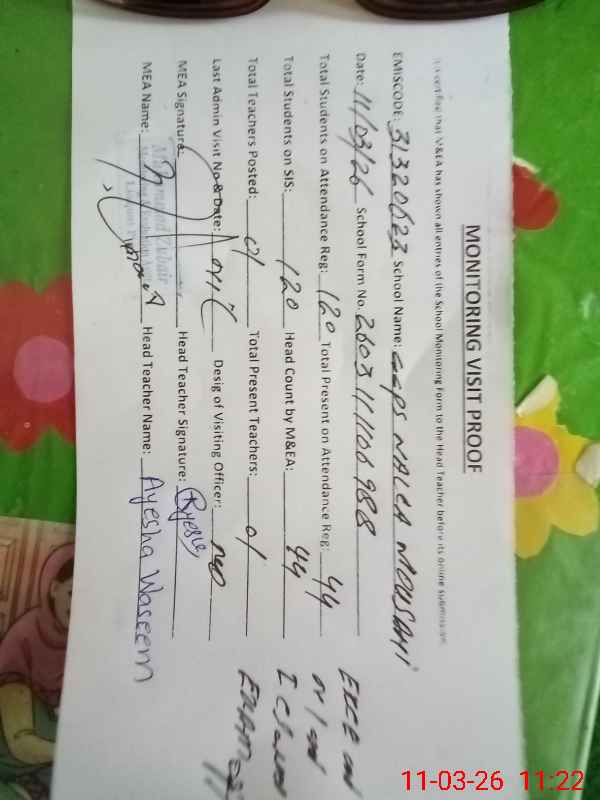 MONITORING VISIT PROOF
It is certified that M&EA has shown all entries of the School Monitoring Form to the Head Teacher before its online submission.
EMISCODE: 31320623 School Name: GGPS NALKA MOUSANI
Date: 11/03/26 School Form No. 260311106988
Total Students on Attendance Reg: 120 Total Present on Attendance Reg: 44
Total Students on SIS: 120 Head Count by M&EA: 44
Total Teachers Posted: 01 Total Present Teachers: 01
Last Admin Visit No & Date: Desig of Visiting Officer:
MEA Signature: Head Teacher Signature: Ayesha
MEA Name: Head Teacher Name: Ayesha Waseem
Muhammad Zubair
11-03-26 11:22